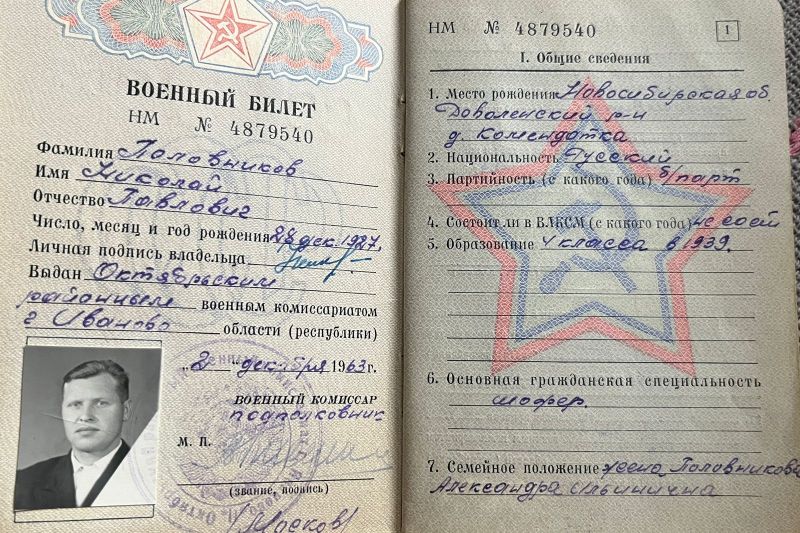 ВОЕННЫЙ БИЛЕТ
НМ № 4879540
Фамилия Половников
Имя Николай
Отчество Павлович
Число, месяц и год рождения 28 дек. 1927 г.
Личная подпись владельца
Выдан Октябрьским
районным военным комиссариатом
г Иваново области (республики)
„2" декабря 1963 г.
ВОЕННЫЙ КОМИССАР
подполковник
М. П.
(звание, подпись)
НМ № 4879540
1
I. Общие сведения
1. Место рождения Новосибирская об.
Доволенский р-н
д. Комендатка
2. Национальность Русский
3. Партийность (с какого года) б/парт
4. Состоит ли в ВЛКСМ (с какого года) не сост
5. Образование 4 класса в 1939.
6. Основная гражданская специальность
шофер.
7. Семейное положение жена Половникова
Александра Ильинична